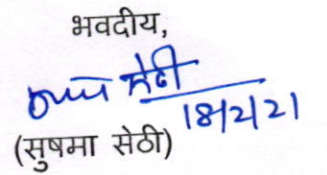 भवदीय,
सेठी
18/2/21
(सुषमा सेठी)